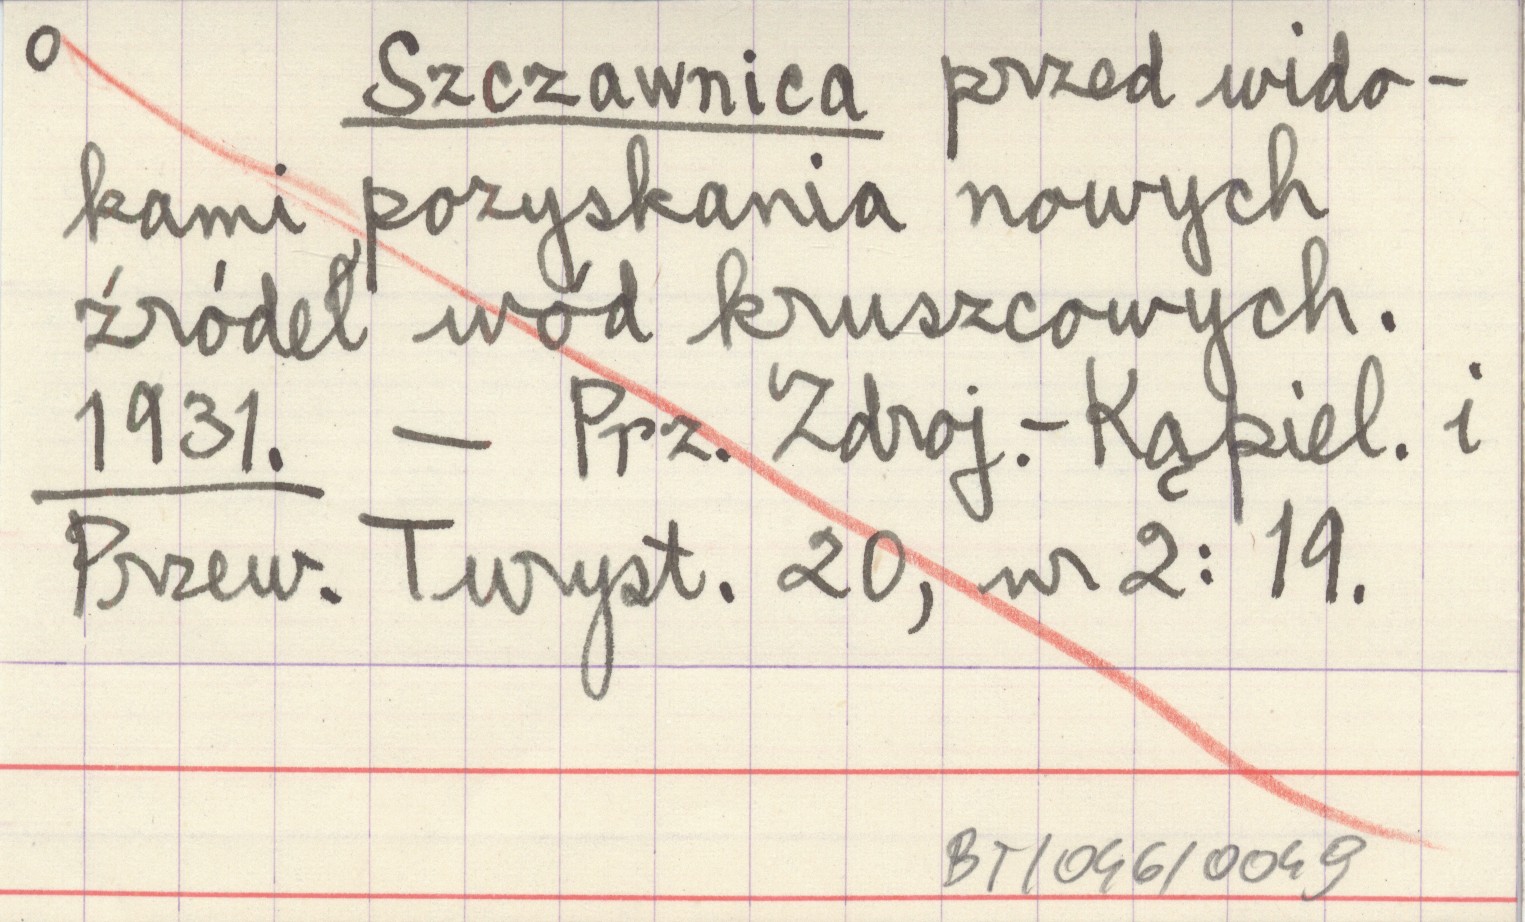 o
Szczawnica przed wido-
kami pozyskania nowych
źródeł wód kruszcowych.
1931. — Prz. Zdroj.-Kąpiel. i
Przew. Turyst. 20, nr 2: 19.
BT/046/0049